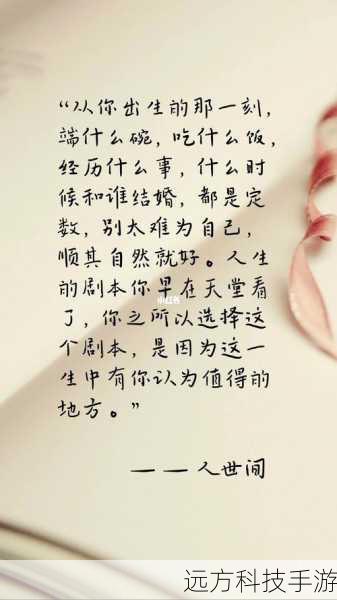 “从你出生的那一刻，
端什么碗，吃什么饭，
经历什么事，什么时
候和谁结婚，都是定
数，别太难为自己，
顺其自然就好。人生
的剧本你早在天堂看
小红书
了，你之所以选择这
个剧本，是因为这一
生中有你认为值得的
地方。”
——人世间
远方科技手游